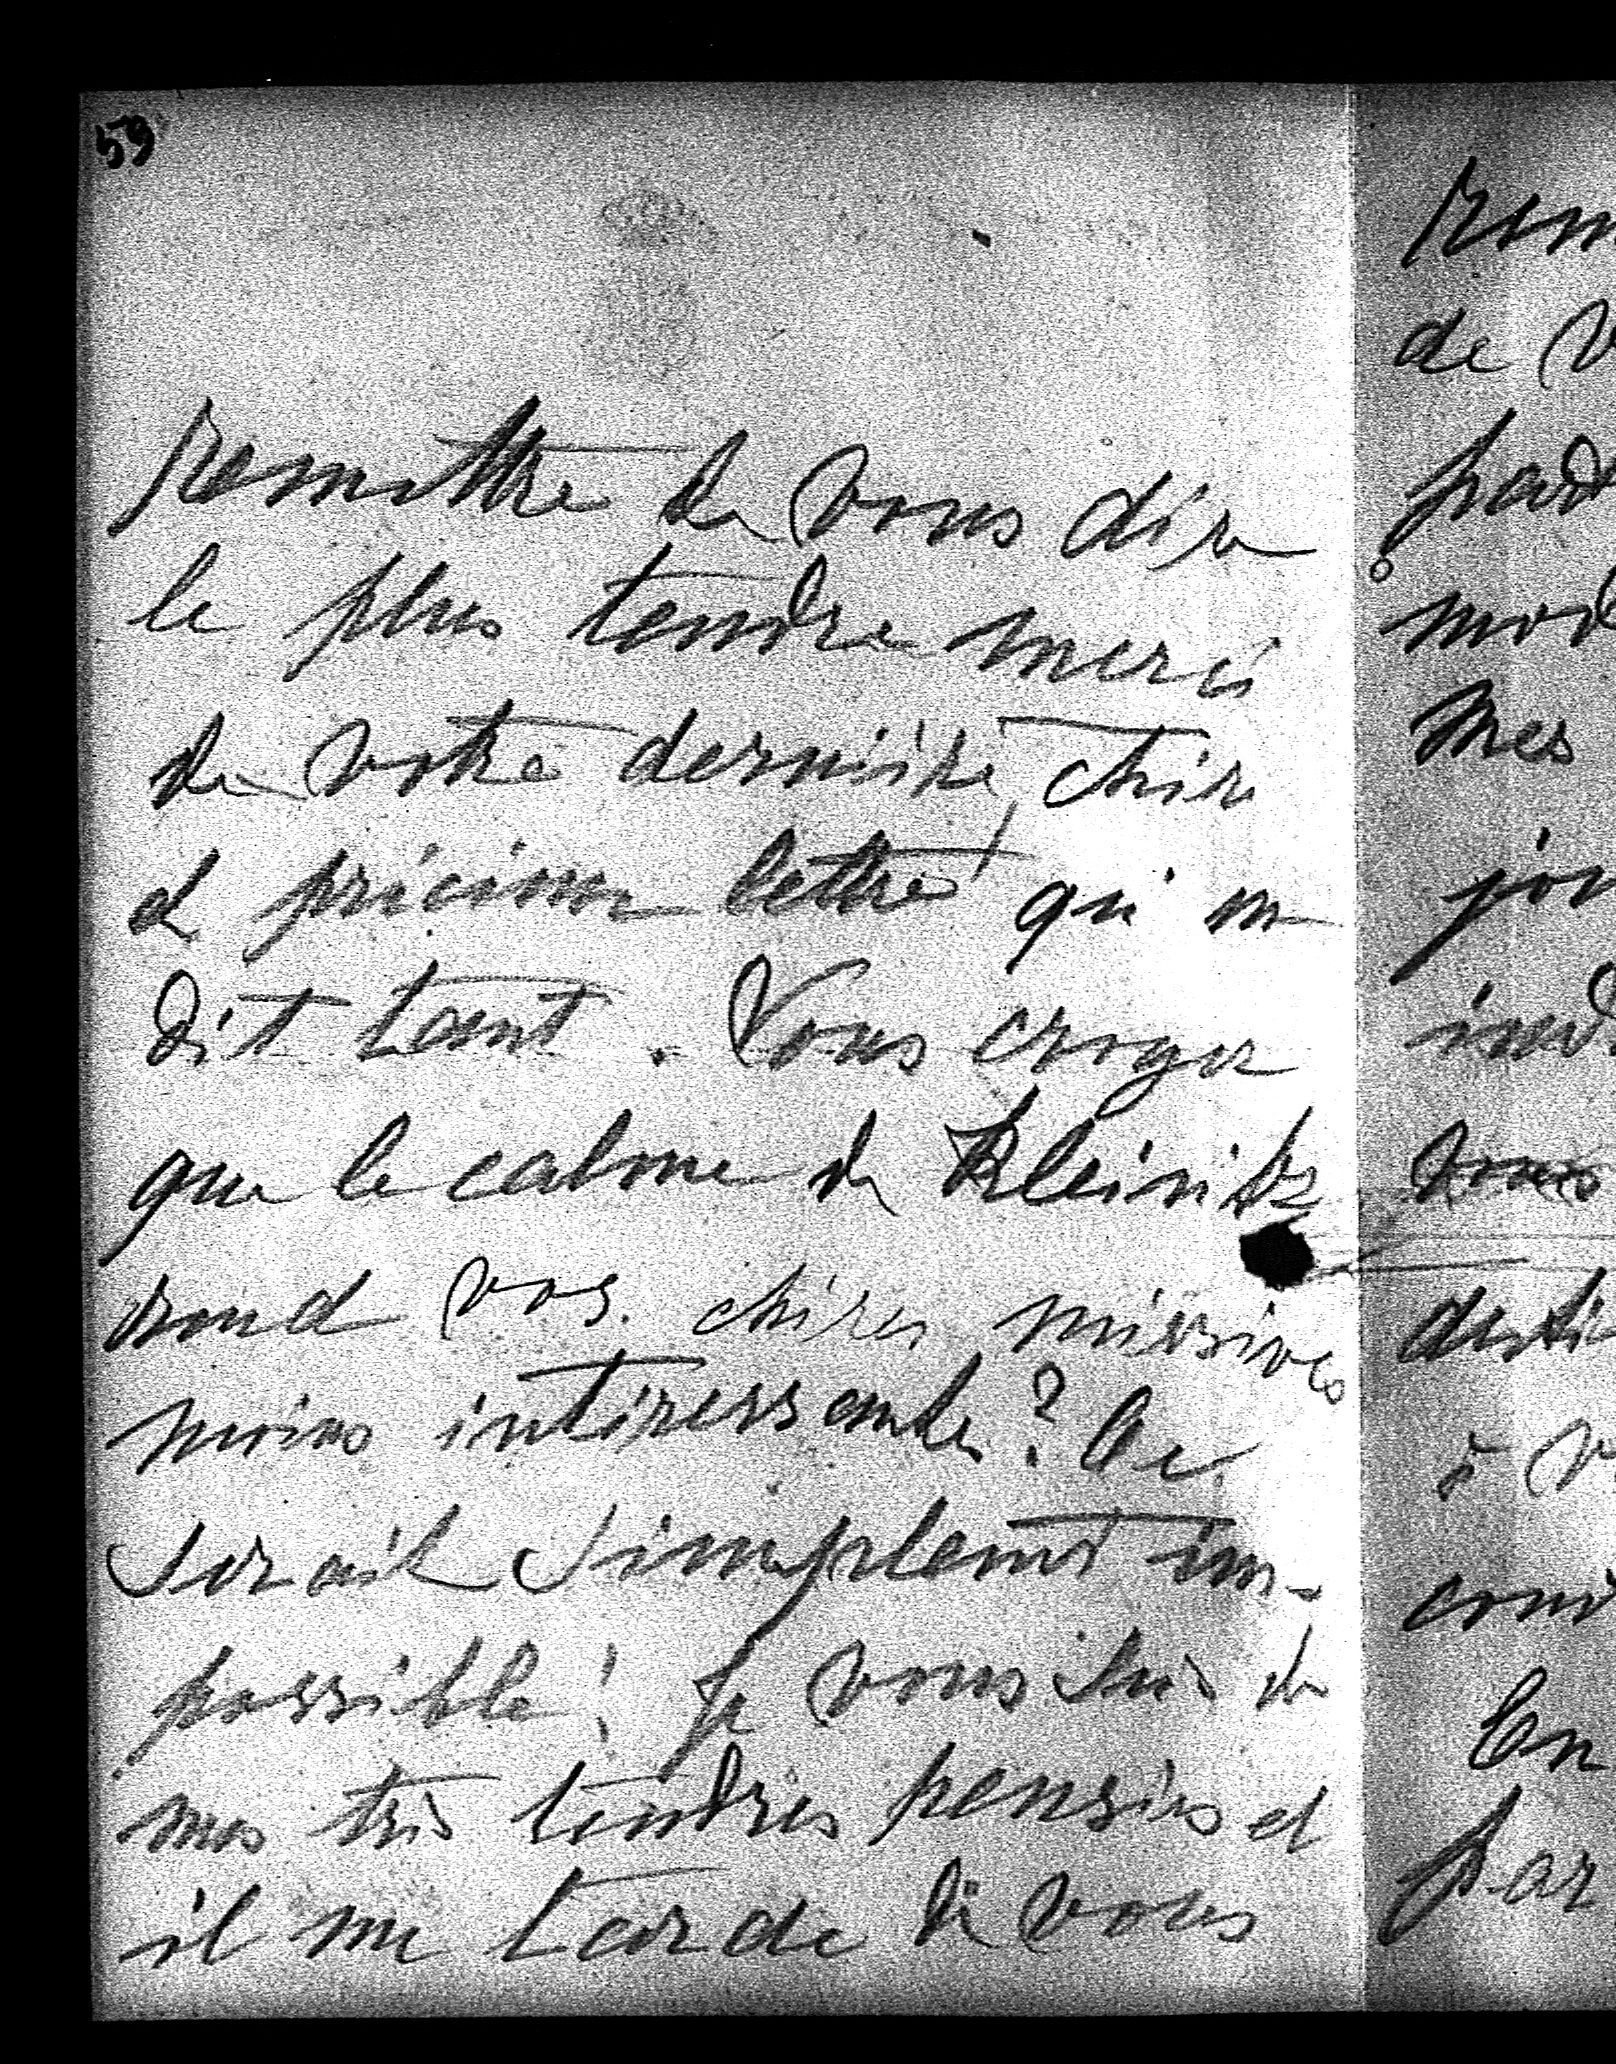 59
remettre de vous dire
le plus tendre merci
de votre dernière, chère
et précieuse lettre, qui m
dit tant. Vous croyez
que le calme de Kleinitz
rend vos chères missives
moins intéressantes? Ce
serait simplemt im-
possible! Je vous suis de
mes très tendres pensées et
il me tarde de vous
rem
de v
mod
mes
jou
ind
vous
desti
à v
En
par